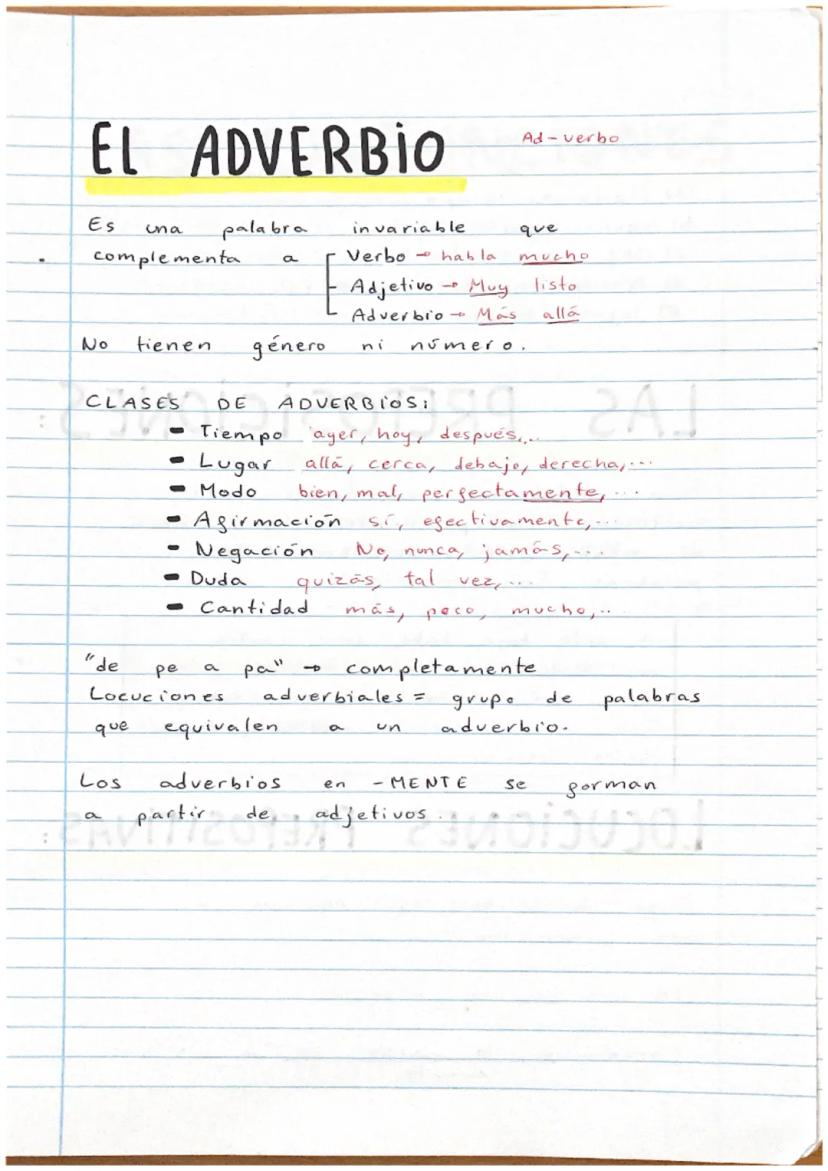 EL ADVERBIO
Ad-verbo
Es una palabra invariable que
complementa a Verbo → habla mucho
Adjetivo → Muy listo
Adverbio → Más allá
No tienen género ni número.
CLASES DE ADVERBIOS:
- Tiempo ayer, hoy, después,...
- Lugar allá, cerca, debajo, derecha,...
- Modo bien, mal, perfectamente,...
- Afirmación sí, efectivamente,...
- Negación No, nunca, jamás,...
- Duda quizás, tal vez,...
- Cantidad más, poco, mucho,..
"de pe a pa" → completamente
Locuciones adverbiales = grupo de palabras
que equivalen a un adverbio.
Los adverbios en -MENTE se forman
a partir de adjetivos.
LAS PREPOSICIONES:
LOCUCIONES PREPOSITIVAS: